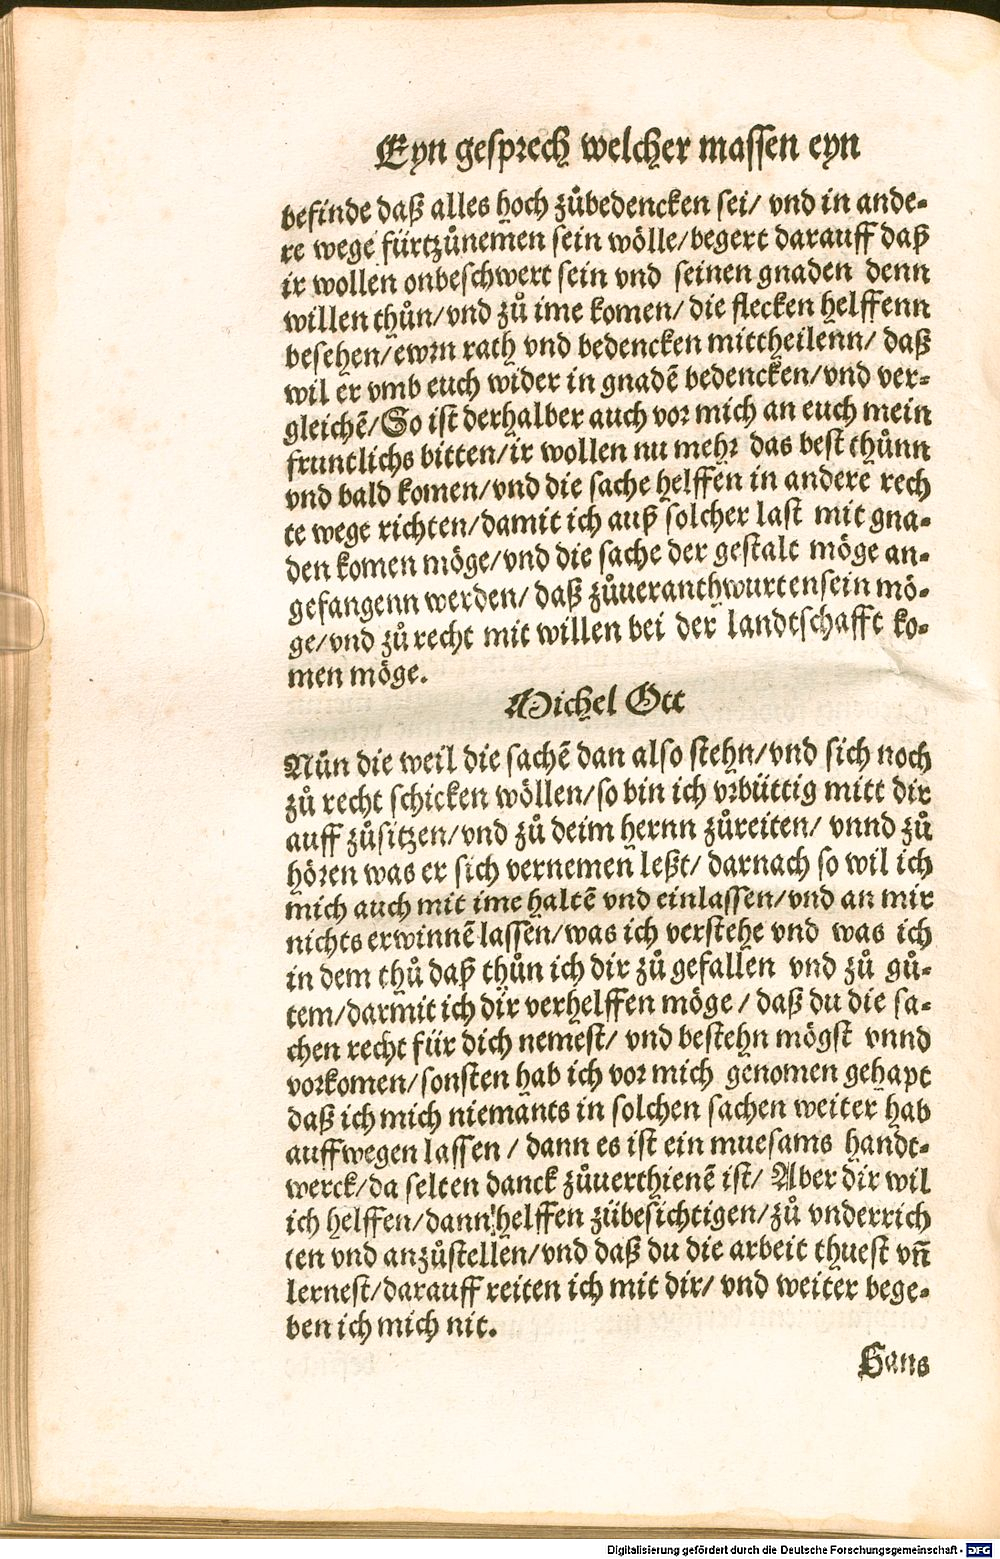 Eyn gesprech welcher massen eyn
befinde daß alles hoch zůbedencken sei/ vnd in ande-
re wege fürtzůnemen sein wölle/begert darauff daß
ir wollen onbeschwert sein vnd seinen gnaden denn
willen thůn/vnd zů ime komen/ die flecken helffenn
besehen/ewrn rath vnd bedencken mittheilenn/ daß
wil er vmb euch wider in gnadẽ bedencken/vnd ver-
gleichẽ/So ist derhalber auch vor mich an euch mein
fruntlichs bitten/ir wollen nu mehr das best thůnn
vnd bald komen/vnd die sache helffen in andere rech
te wege richten/damit ich auß solcher last mit gna-
den komen möge/vnd die sache der gestalt möge an-
gefangenn werden/ daß zůueranthwurtensein mö-
ge/vnd zů recht mit willen bei der landtschafft ko-
men möge.
Michel Ott
Nůn die weil die sachẽ dan also stehn/vnd sich noch
zů recht schicken wöllen/so bin ich vrbüttig mitt dir
auff zůsitzen/vnd zů deim hernn zůreiten/ vnnd zů
hören was er sich vernemen leßt/ darnach so wil ich
mich auch mit ime haltẽ vnd einlassen/vnd an mir
nichts erwinnẽ lassen/was ich verstehe vnd was ich
in dem thů daß thůn ich dir zů gefallen vnd zů gů-
tem/darmit ich dir verhelffen möge / daß du die sa-
chen recht für dich nemest/ vnd bestehn mögst vnnd
vorkomen/sonsten hab ich vor mich genomen gehapt
daß ich mich niemants in solchen sachen weiter hab
auffwegen lassen / dann es ist ein muesams handt-
werck/da selten danck zůuerthienẽ ist/ Aber dir wil
ich helffen/dann helffen zübesichtigen/zů vnderrich
ten vnd anzůstellen/vnd daß du die arbeit thuest vñ
lernest/darauff reiten ich mit dir/ vnd weiter bege-
ben ich mich nit.
Hans
Digitalisierung gefördert durch die Deutsche Forschungsgemeinschaft - DFG